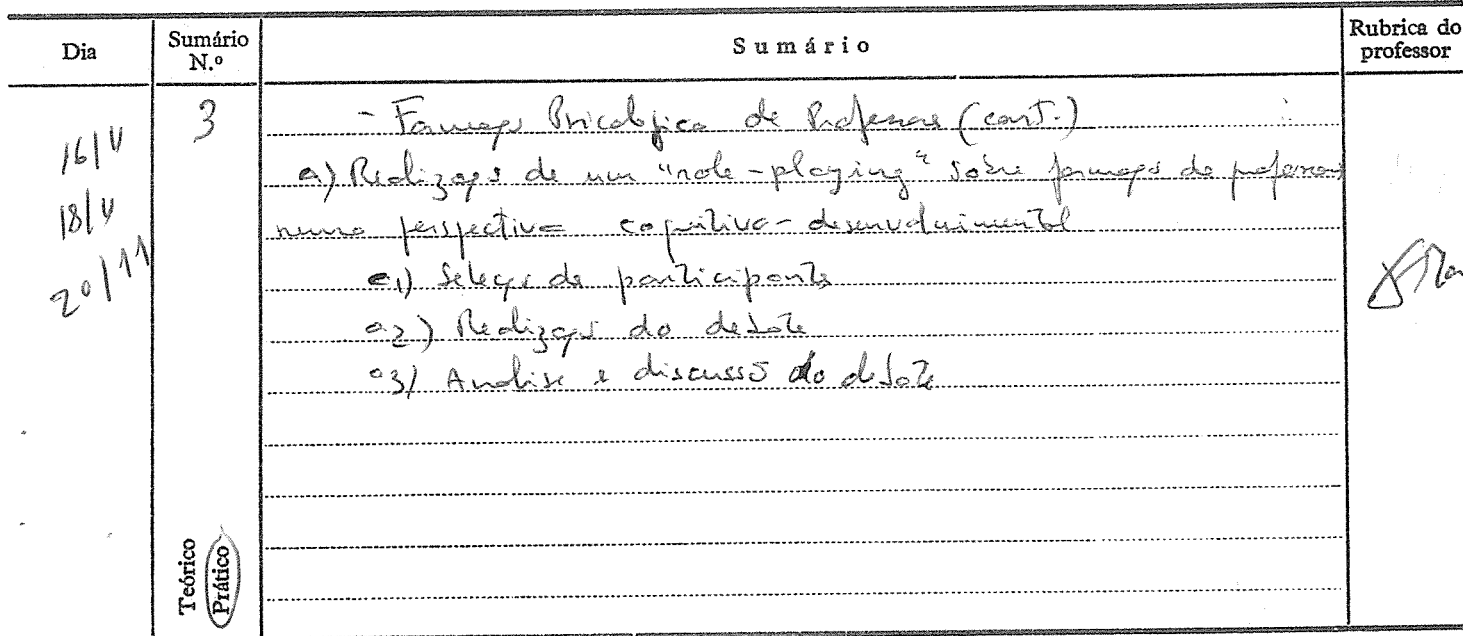 Dia
Sumário N.º
Sumário
Rubrica do professor
16/V
18/V
20/11
3
- Formação Psicológica de Professores (cont.)
a) Realização de um "role-playing" sobre formação de professores
numa perspectiva cognitivo-desenvolvimental
a1) Seleção de participantes
a2) Realização do debate
a3) Análise e discussão do debate
Teórico
Prático